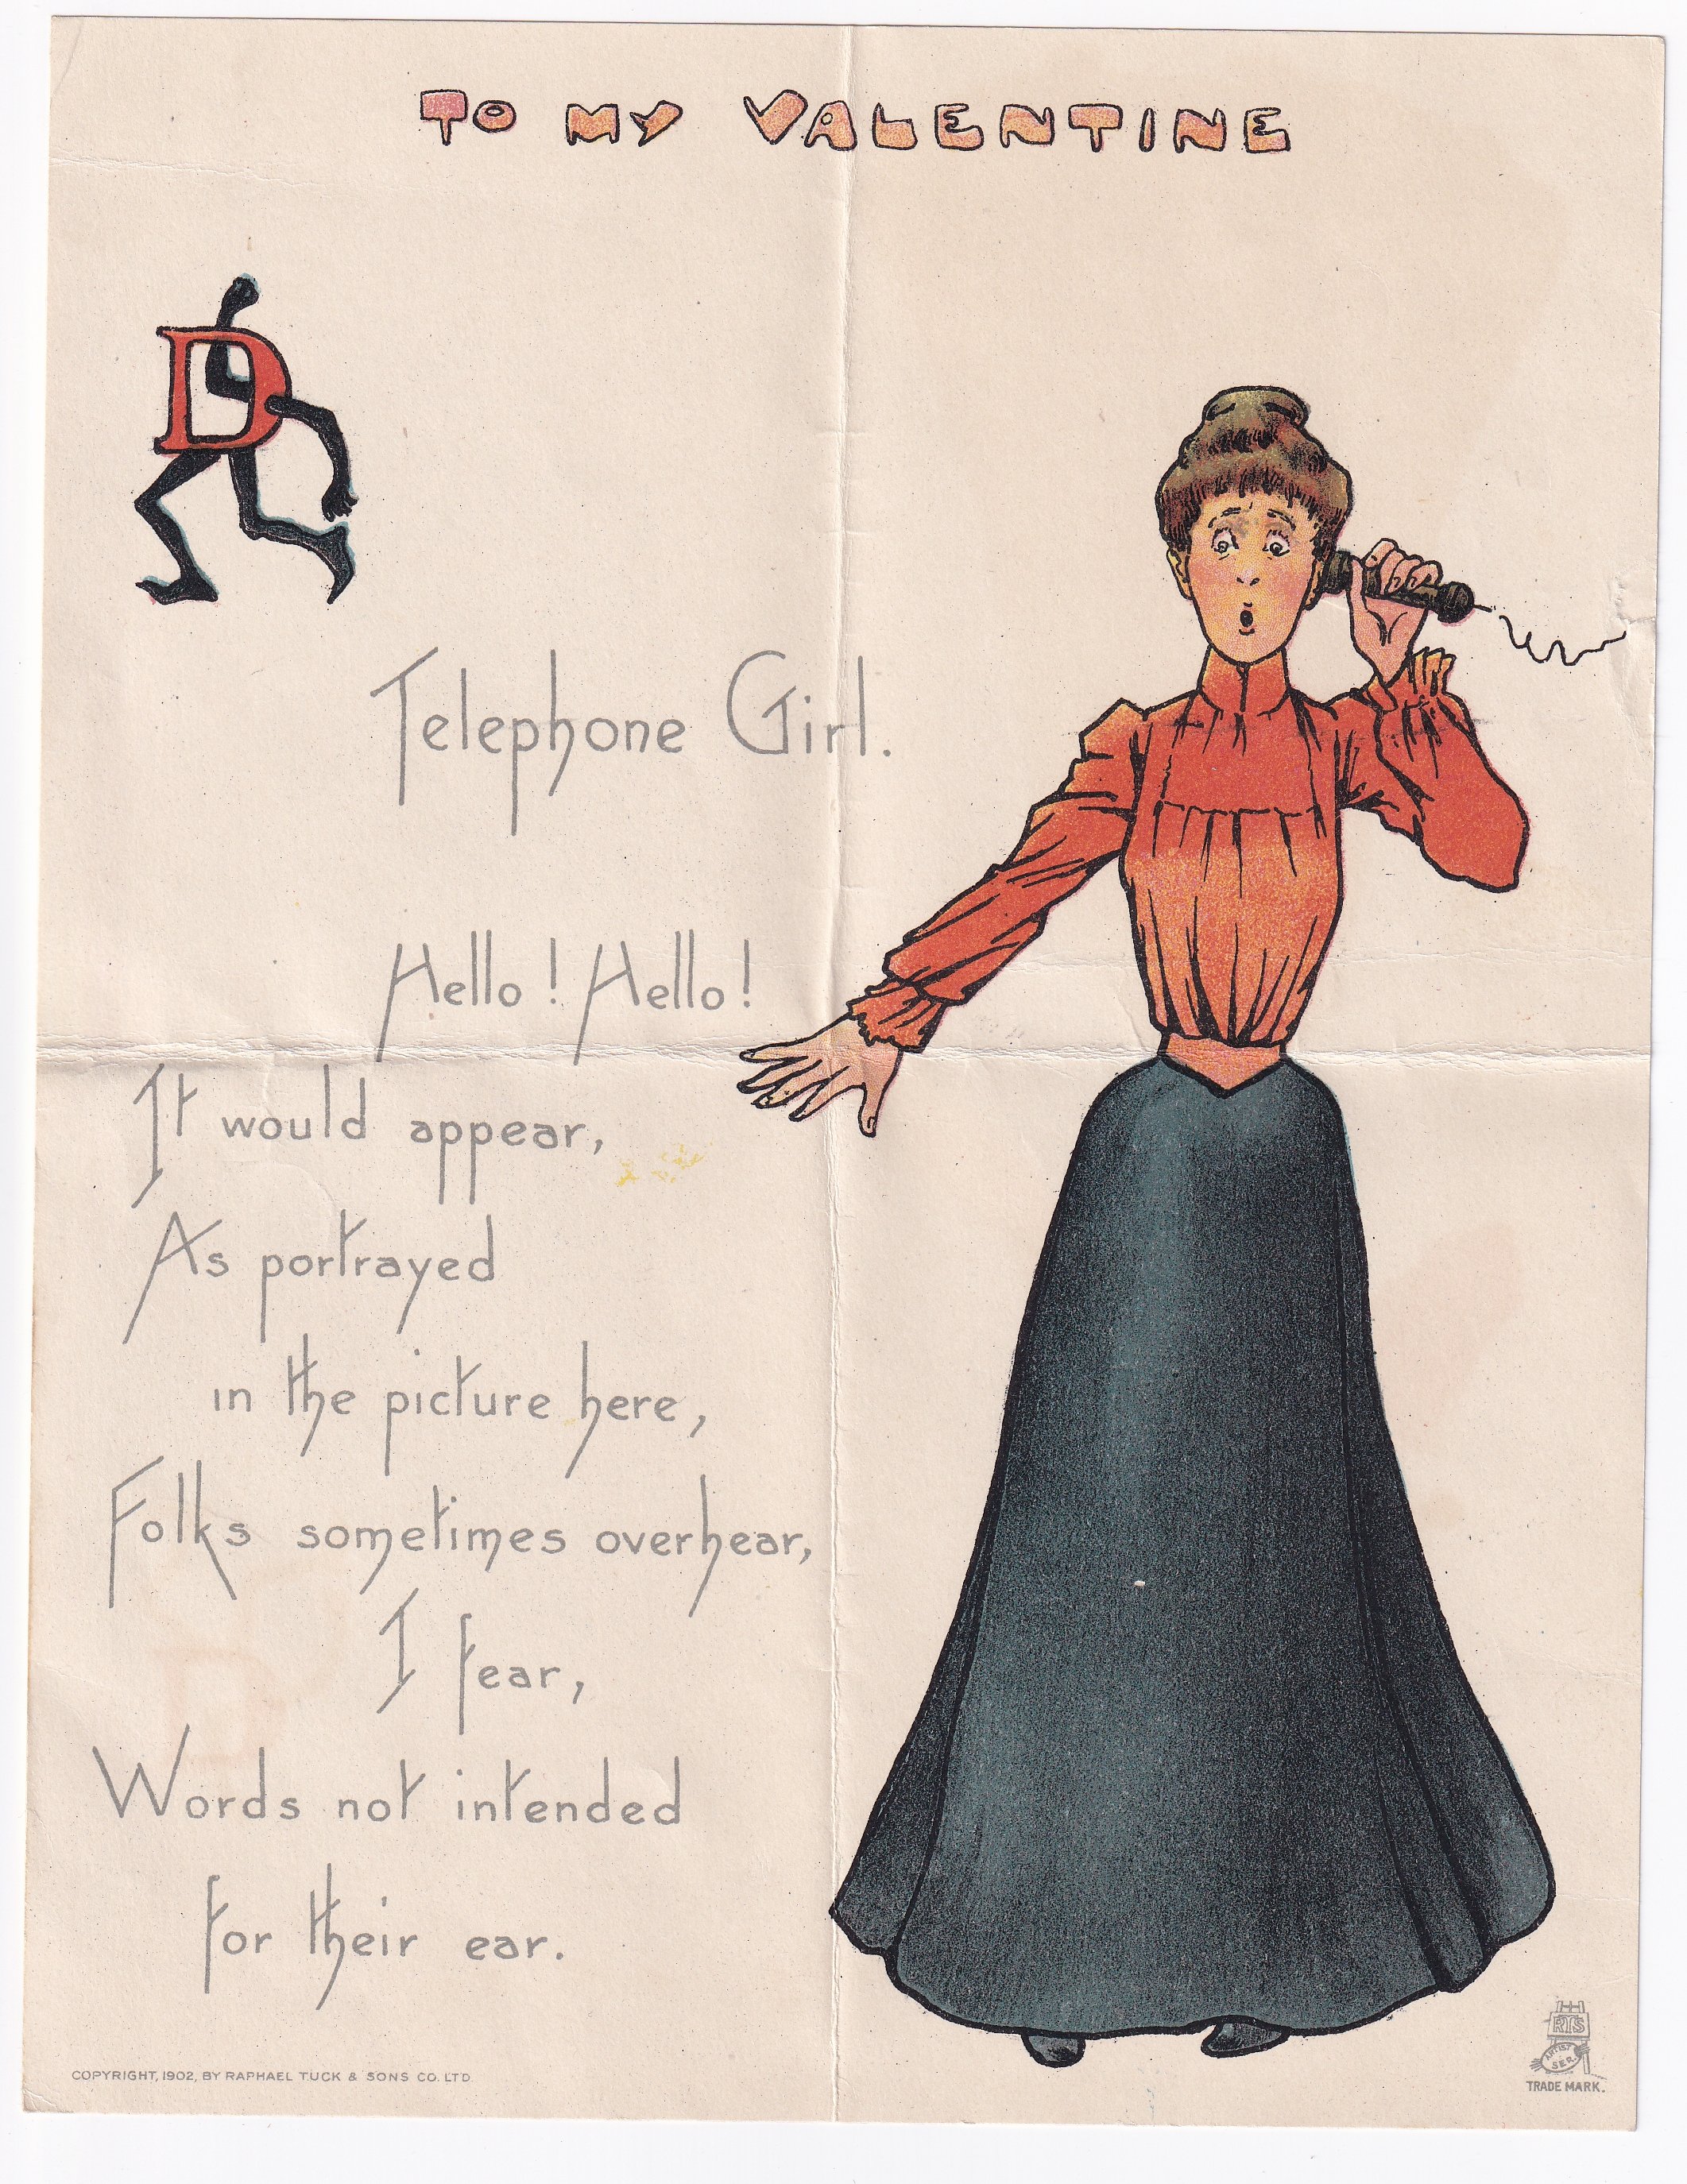 TO MY VALENTINE
D
Telephone Girl.
Hello! Hello!
It would appear,
As portrayed
in the picture here,
Folks sometimes overhear,
I fear,
Words not intended
for their ear.
COPYRIGHT, 1902, BY RAPHAEL TUCK & SONS CO. LTD.
RTS
ARTIST
SER.
TRADE MARK.